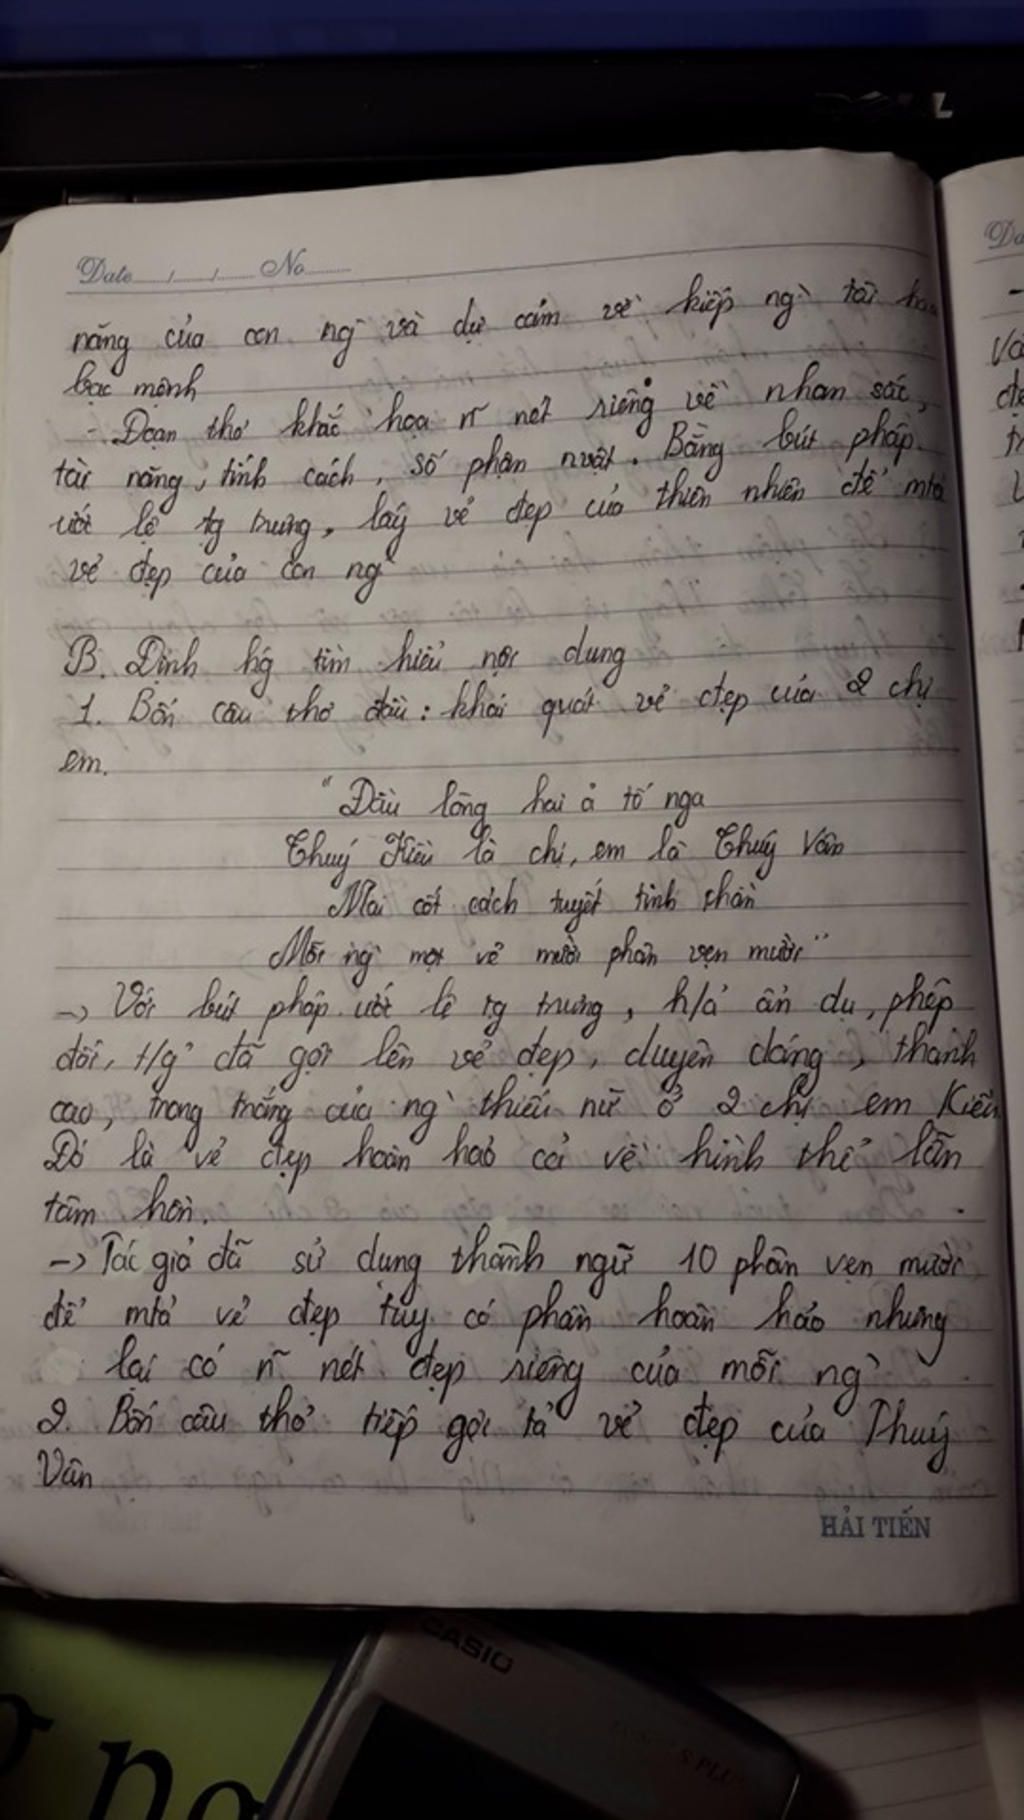 DELL
Date / / No
năng của con ng` và dự cảm về kiếp ng` tài hoa
bạc mệnh
- Đoạn thơ khắc họa n~ nét riêng về nhan sắc,
tài năng, tính cách, số phận nvật. Bằng bút pháp
ước lệ tg trưng, lấy vẻ đẹp của thiên nhiên để mtả
vẻ đẹp của con ng`
B. Định hg tìm hiểu nội dung
1. Bốn câu thơ đầu: khái quát vẻ đẹp của 2 chị
em.
"Đầu lòng hai ả tố nga
Thuý Kiều là chị, em là Thuý Vân
Mai cốt cách tuyết tinh thần
Mỗi ng` một vẻ mười phân vẹn mười"
-> Với bút pháp ước lệ tg trưng, h/ả ẩn dụ, phép
đối, t/g? đã gợi lên vẻ đẹp, duyên dáng, thanh
cao, trong trắng của ng` thiếu nữ ở 2 chị em Kiều
Đó là vẻ đẹp hoàn hảo cả về hình thể lẫn
tâm hồn.
-> Tác giả đã sử dụng thành ngữ 10 phân vẹn mười
để mtả vẻ đẹp tuy có phần hoàn hảo nhưng
lại có n~ nét đẹp riêng của mỗi ng`
2. Bốn câu thơ tiếp gợi tả vẻ đẹp của Thuý
Vân
HẢI TIẾN
CASIO